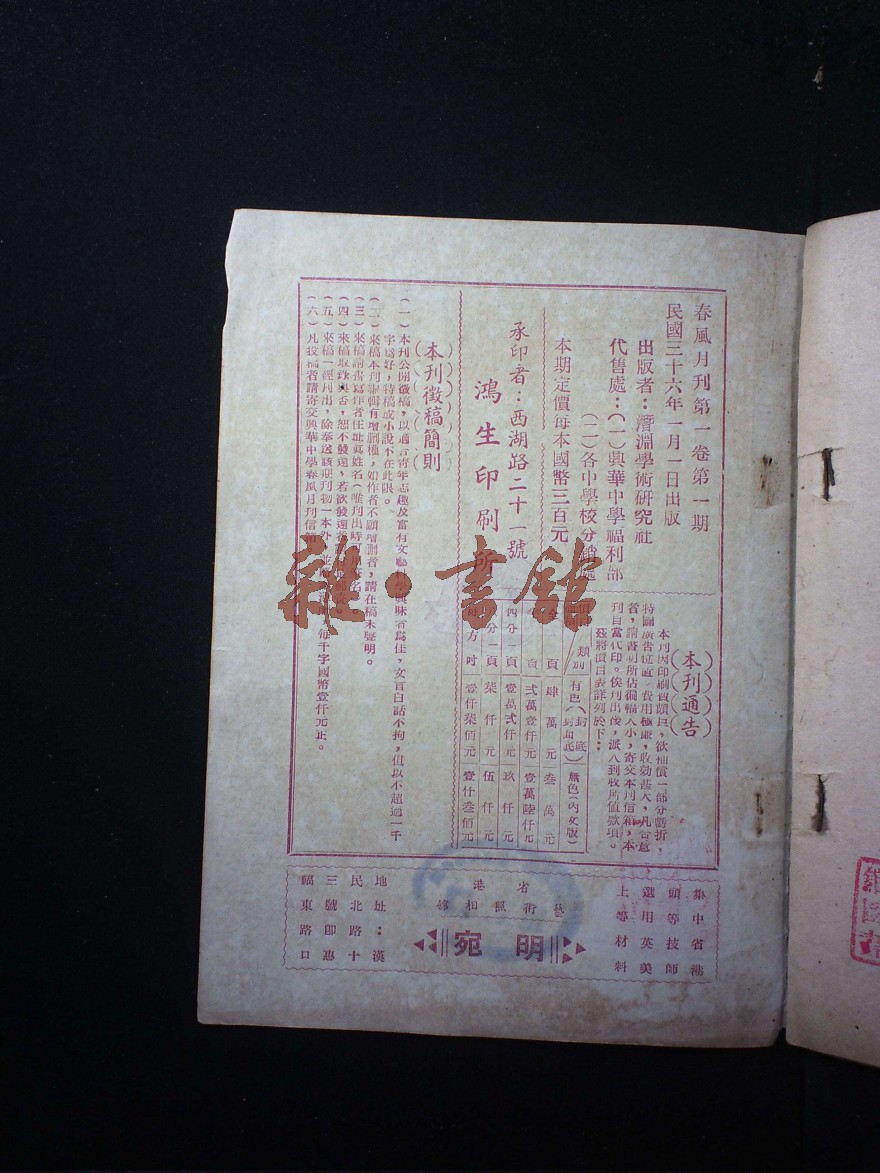 春風月刊第一卷第一期
民國三十六年一月一日出版
出版者：潛淵學術研究社
代售處：（一）興華中學福利部
（二）各中學校分銷處
本期定價每本國幣三百元
承印者：西湖路二十一號
鴻生印刷所
（本刊通告）
本刊因印刷費頗巨，欲補償一部分虧折，
特闢廣告位置，費用極廉，收効甚大，凡合意
者，請書明所佔篇幅大小，寄交本刊信箱，本
刊自當代印。俟刊出後，派人到收所值欵項。
茲將價目表詳列於下：
類別 有色（封面底底） 無色（內文版）
全頁 肆萬元 叁萬元
頁 弍萬壹仟元 壹萬陸仟元
四分一頁 壹萬弍仟元 玖仟元
分一頁 柒仟元 伍仟元
每方吋 壹仟柒佰元 壹仟叁佰元
（本刊徵稿簡則）
（一）本刊公開徵稿，以適合青年志趣及富有文藝科學興味者爲佳，文言白話不拘，但以不超過一千
字爲好，特稿或小說不在此限。
（二）來稿本刊編輯有增刪權，如作者不願增刪者，請在稿末聲明。
（三）來稿請書寫作者住址眞姓名（唯刊出時可用筆名
（四）來稿取錄與否，恕不發還，若欲發還
（五）來稿一經刊出，除奉送該期刊物一本外，並 每千字國幣壹仟元正。
（六）凡投稿者請寄交興華中學春風月刊信箱
集中省港
頭等技師
選用英美
上等材料
省港
藝術照相館
明宛
地址：漢
民北路十
三號即惠
福東路口
雜·書館